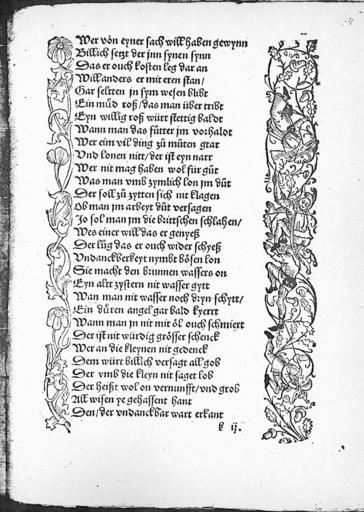 Wer von eyner sach will haben gewynn
Billich setzt der jnn synen synn
Das er ouch kosten leg dar an
Will anders er mit eren stan/
Gar seltten jn sym wesen blibt
Ein müd roß/das man über tribt
Eyn willig roß würt stettig baldt
Wann man das fütter jm vorhalot
Wer eim vil ding zü müten gtar
Vnd lonen nitt/der ist eyn narr
Wer nit mag haben wol für güt
Was man vmb zymlich lon jm düt
Der soll zü zytten sich nit klagen
Ob man jm arbeyt düt versagen
Jo sol man jm die brittschen schlahen/
Wes einer will das er genyeß
Der lüg das er ouch wider schyeß
Vndanckberkeyt nymbt bösen lon
Sie macht den brunnen wassers on
Eyn altt zystern nit wasser gytt
Wan man nit wasser noch dryn schytt/
Ein düren angel gar bald kyerrt
Wann man jn nit mit öl ouch schmiert
Der ist nit würdig grösser schenck
Wer an die kleynen nit gedenck
Dem würt billich versagt all gob
Der vmb die kleyn nit saget lob
Der heißt wol on vernunfft/vnd grob
All wisen ye gehassent hant
Den/der vndanckbar wart erkant
k ij.